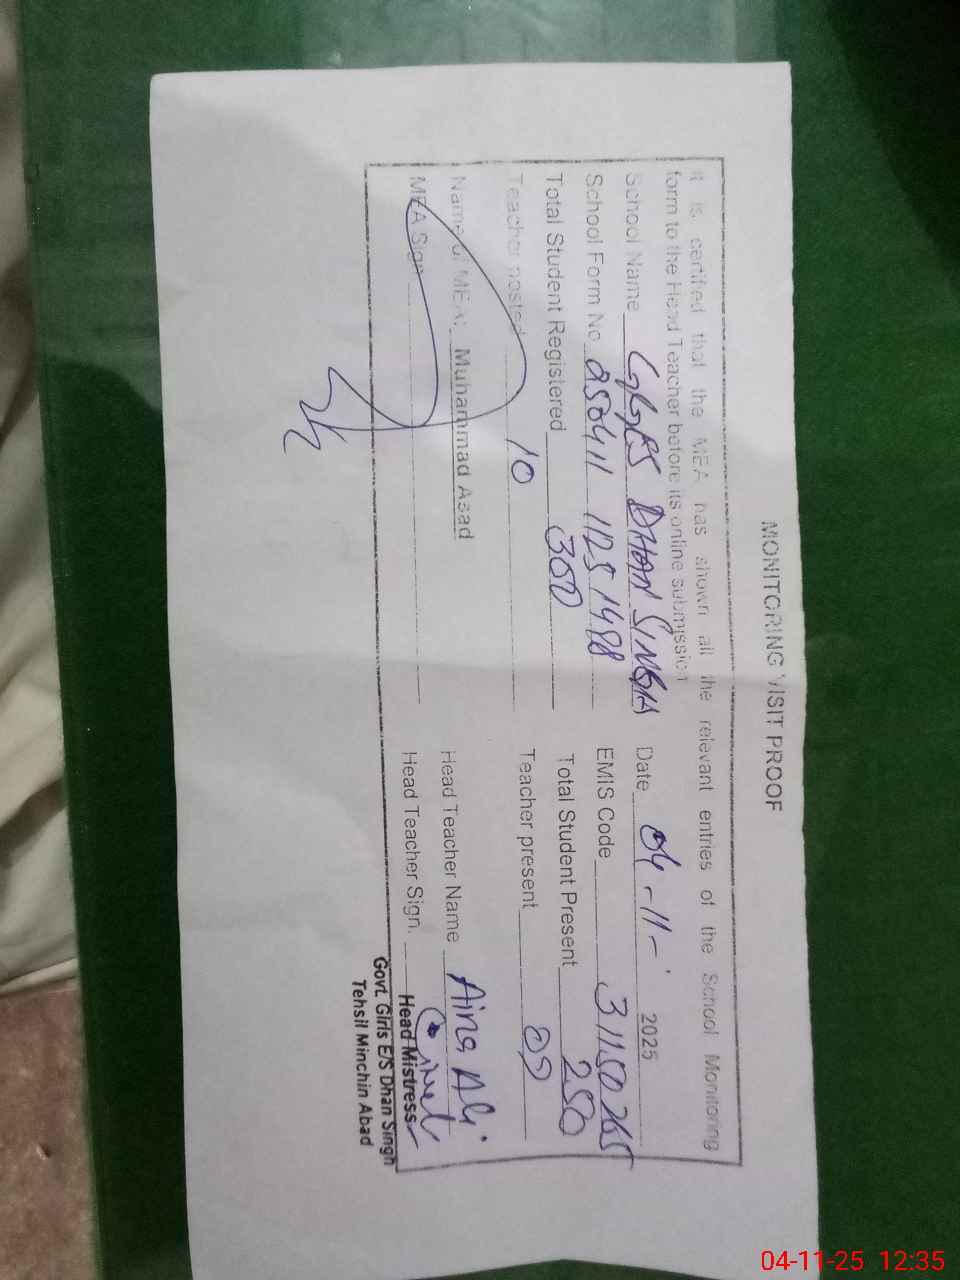 MONITORING VISIT PROOF
It is certified that the MEA has shown all the relevant entries of the School Monitoring
form to the Head Teacher before its online submission
School Name GGES DHAN SINGH Date 04-11- 2025
School Form No 250411 1125 1488 EMIS Code 31150265
Total Student Registered 300 Total Student Present 250
Teacher posted 10 Teacher present 09
Name of MEA: Muhammad Asad Head Teacher Name Aina Ali
MEA Sign Head Teacher Sign.
Head Mistress
Govt. Girls E/S Dhan Singh
Tehsil Minchin Abad
04-11-25 12:35